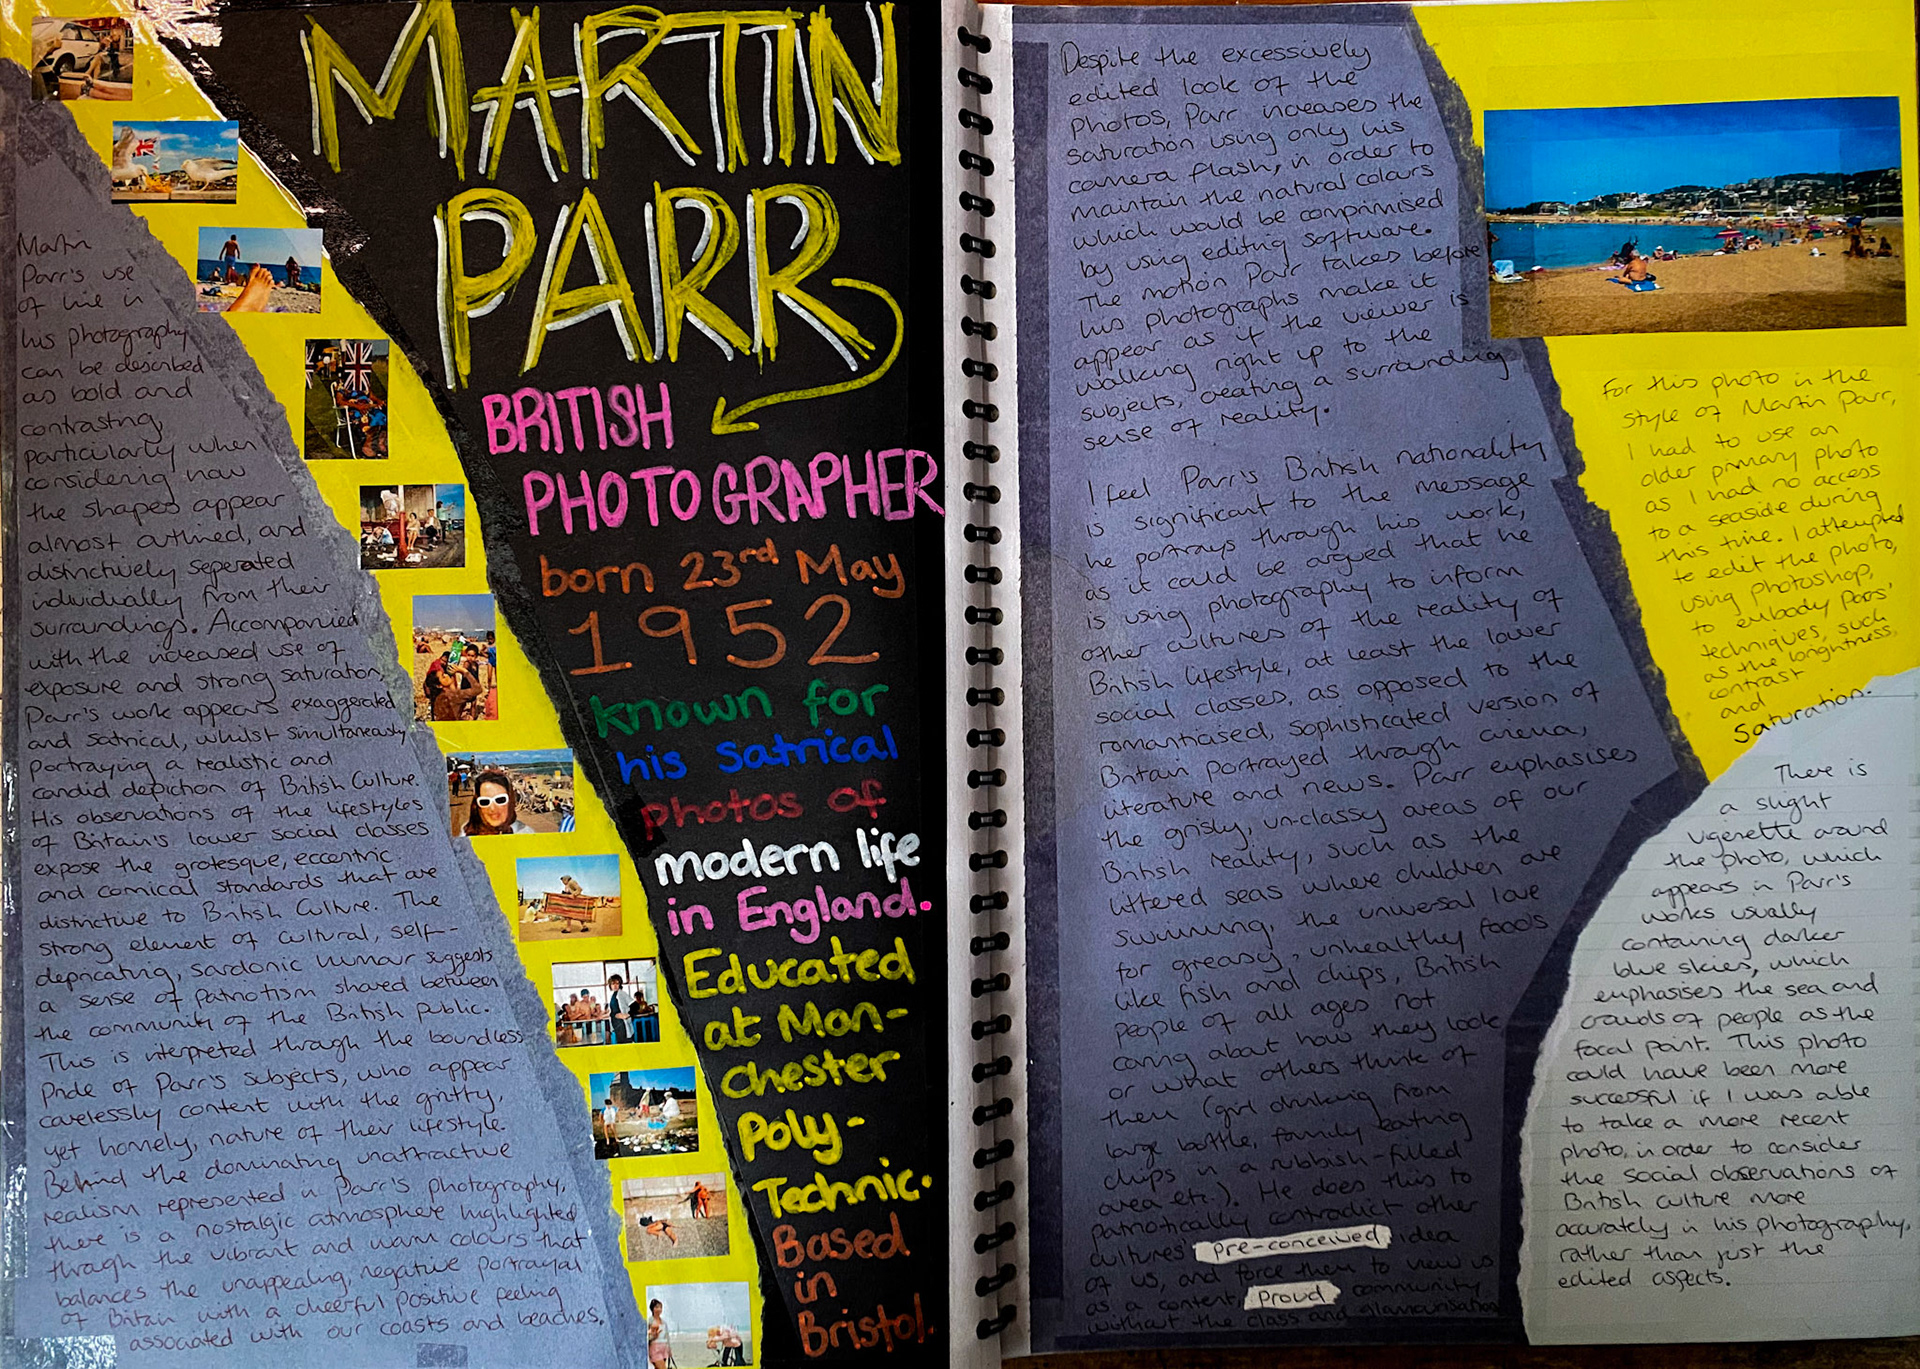 MARTIN
PARR
BRITISH
PHOTOGRAPHER
born 23rd May
1952
known for
his satrical
photos of
modern life
in England.
Educated
at Man-
chester
Poly-
Technic.
Based
in
Bristol.
Martin
Parr's use
of line in
his photography
can be described
as bold and
contrasting,
particularly when
considering how
the shapes appear
almost outlined, and
distinctively seperated
individially from their
surroundings. Accompanied
with the increased use of
exposure and strong saturation,
Parr's work appears exaggerated
and satrical, whilst simultaneously
portraying a realistic and
candid depiction of British Culture.
His observations of the lifestyles
of Britain's lower social classes
expose the grotesque, eccentric
and comical standards that are
distinctive to British Culture. The
strong element of cultural, self-
depricating, sardonic humour suggests
a sense of patriotism shared between
the community of the British public.
This is interpreted through the boundless
Pride of Parr's subjects, who appear
carelessly content with the gritty,
yet homely, nature of their lifestyle.
Behind the dominating unattractive
realism represented in Parr's photography,
there is a nostalgic atmosphere highlighted
through the vibrant and warm colours that
balances the unappealing, negative portrayal
of Britain with a cheerful positive feeling
associated with our coasts and beaches.
Despite the excessively
edited look of the
photos, Parr increases the
saturation using only his
camera flash, in order to
maintain the natural colours
which would be comprimised
by using editing software.
The motion Parr takes before
his photographs make it
appear as if the viewer is
walking right up to the
subjects, creating a surrounding
sense of reality.
I feel Parr's British nationality
is significant to the message
he portrays through his work,
as it could be argued that he
is using photography to inform
other cultures of the reality of
British lifestyle, at least the lower
social classes, as opposed to the
romantiased, sophisticated version of
Britain portrayed through cinema,
literature and news. Parr emphasises
the grisly, un-classy areas of our
British reality, such as the
littered seas where children are
swimming, the universal love
for greasy, unhealthy foods
like fish and chips, British
people of all ages not
caring about how they look
or what others think of
them (girl drinking from
large bottle, family eating
chips in a rubbish-filled
area etc.). He does this to
patriotically contradict other
cultures' pre-conceived idea
of us, and force them to view us
as a content, proud community
without the class and glamourisation
For this photo in the
style of Martin Parr,
I had to use an
older primary photo
as I had no access
to a seaside during
this time. I attempted
to edit the photo,
using photoshop,
to embody Parrs'
techniques, such
as the brightness,
contrast
and
Saturation.
There is
a slight
vigenette around
the photo, which
appears in Parr's
works usually
containing darker
blue skies, which
emphasises the sea and
crowds of people as the
focal point. This photo
could have been more
successful if I was able
to take a more recent
photo, in order to consider
the social observations of
British culture more
accurately in his photography,
rather than just the
edited aspects.